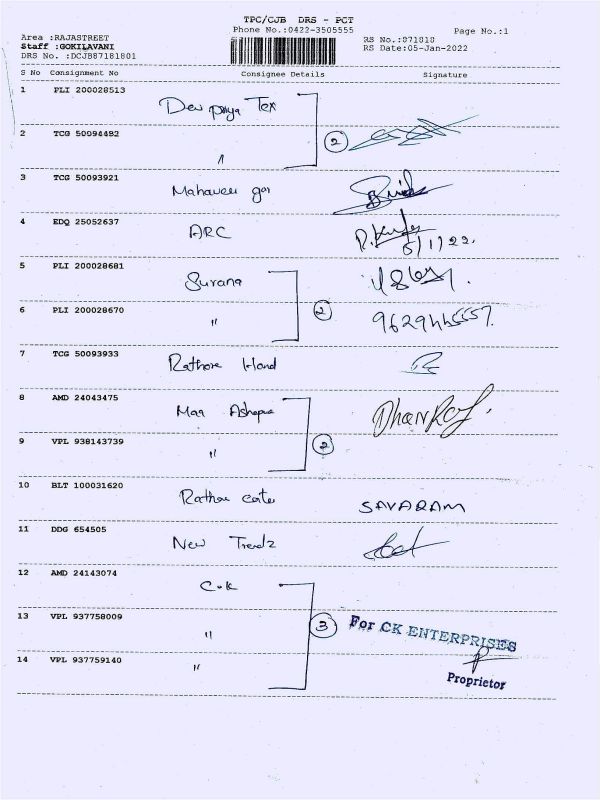 TPC/CJB DRS - PCT
Phone No.:0422-3505555 Page No.:1
Area :RAJASTREET RS No.:871818
Staff :GOKILAVANI RS Date:05-Jan-2022
DRS No. :DCJB87181801
S No Consignment No Consignee Details Signature
1 PLI 200028513 Devpriya Tex
2 TCG 50094482 " 2
3 TCG 50093921 Mahaveer
4 EDQ 25052637 ARC 5/1/22.
5 PLI 200028681 Surana
6 PLI 200028670 " 2 9629445557.
7 TCG 50093933 Rathore Hand
8 AMD 24043475 Maa Ashapura DHANRAJ.
9 VPL 938143739 " 2
10 BLT 100031620 SAVARAM
11 DDG 654505 New Trendz
12 AMD 24143074 C.K
13 VPL 937758009 " 3 For CK ENTERPRISES
14 VPL 937759140 "
Proprietor